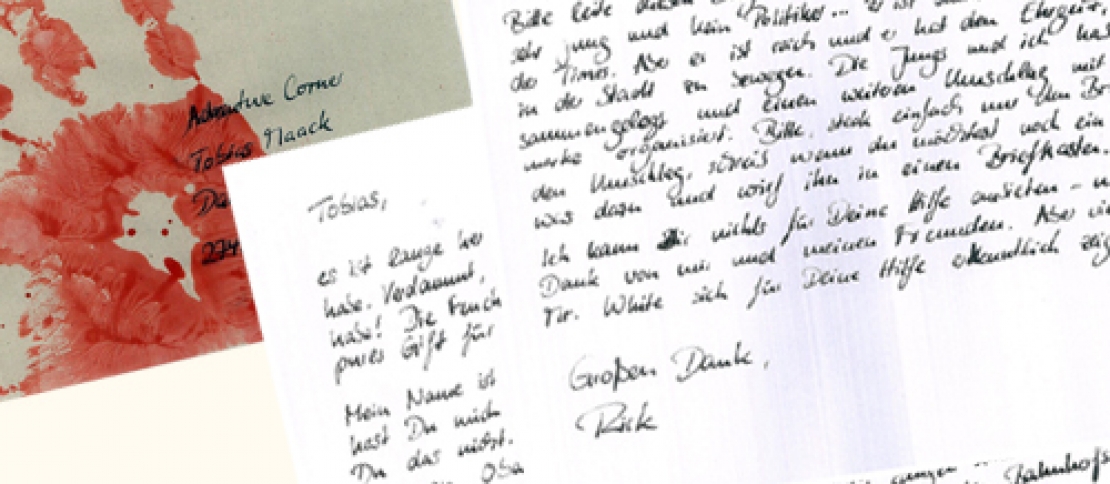 Adventure Corner
Tobias Maack
274
Tobias,
es ist lange her
habe. Verdammt,
habe! Die Feuch
pures Gift für
Mein Name ist
hast Du mich
Du das nicht.
Bitte leite diesen
sehr jung und kein Politiker... Er ist
der Times. Aber er ist reich und er hat den Ehrgeiz,
in der Stadt zu bewegen. Die Jungs und ich
sammengelegt und einen weiteren Umschlag mit
marke organisiert. Bitte, steck einfach nur den
den Umschlag, schreib wenn du möchtest noch ein
was dazu und wirf ihn in einen Briefkasten.
Ich kann Dir nichts für Deine Hilfe anbieten -
Dank von mir und meinen Freunden. Aber
Mr. White sich für Deine Hilfe erkenntlich
Großen Dank,
Rick
Bahnhofs